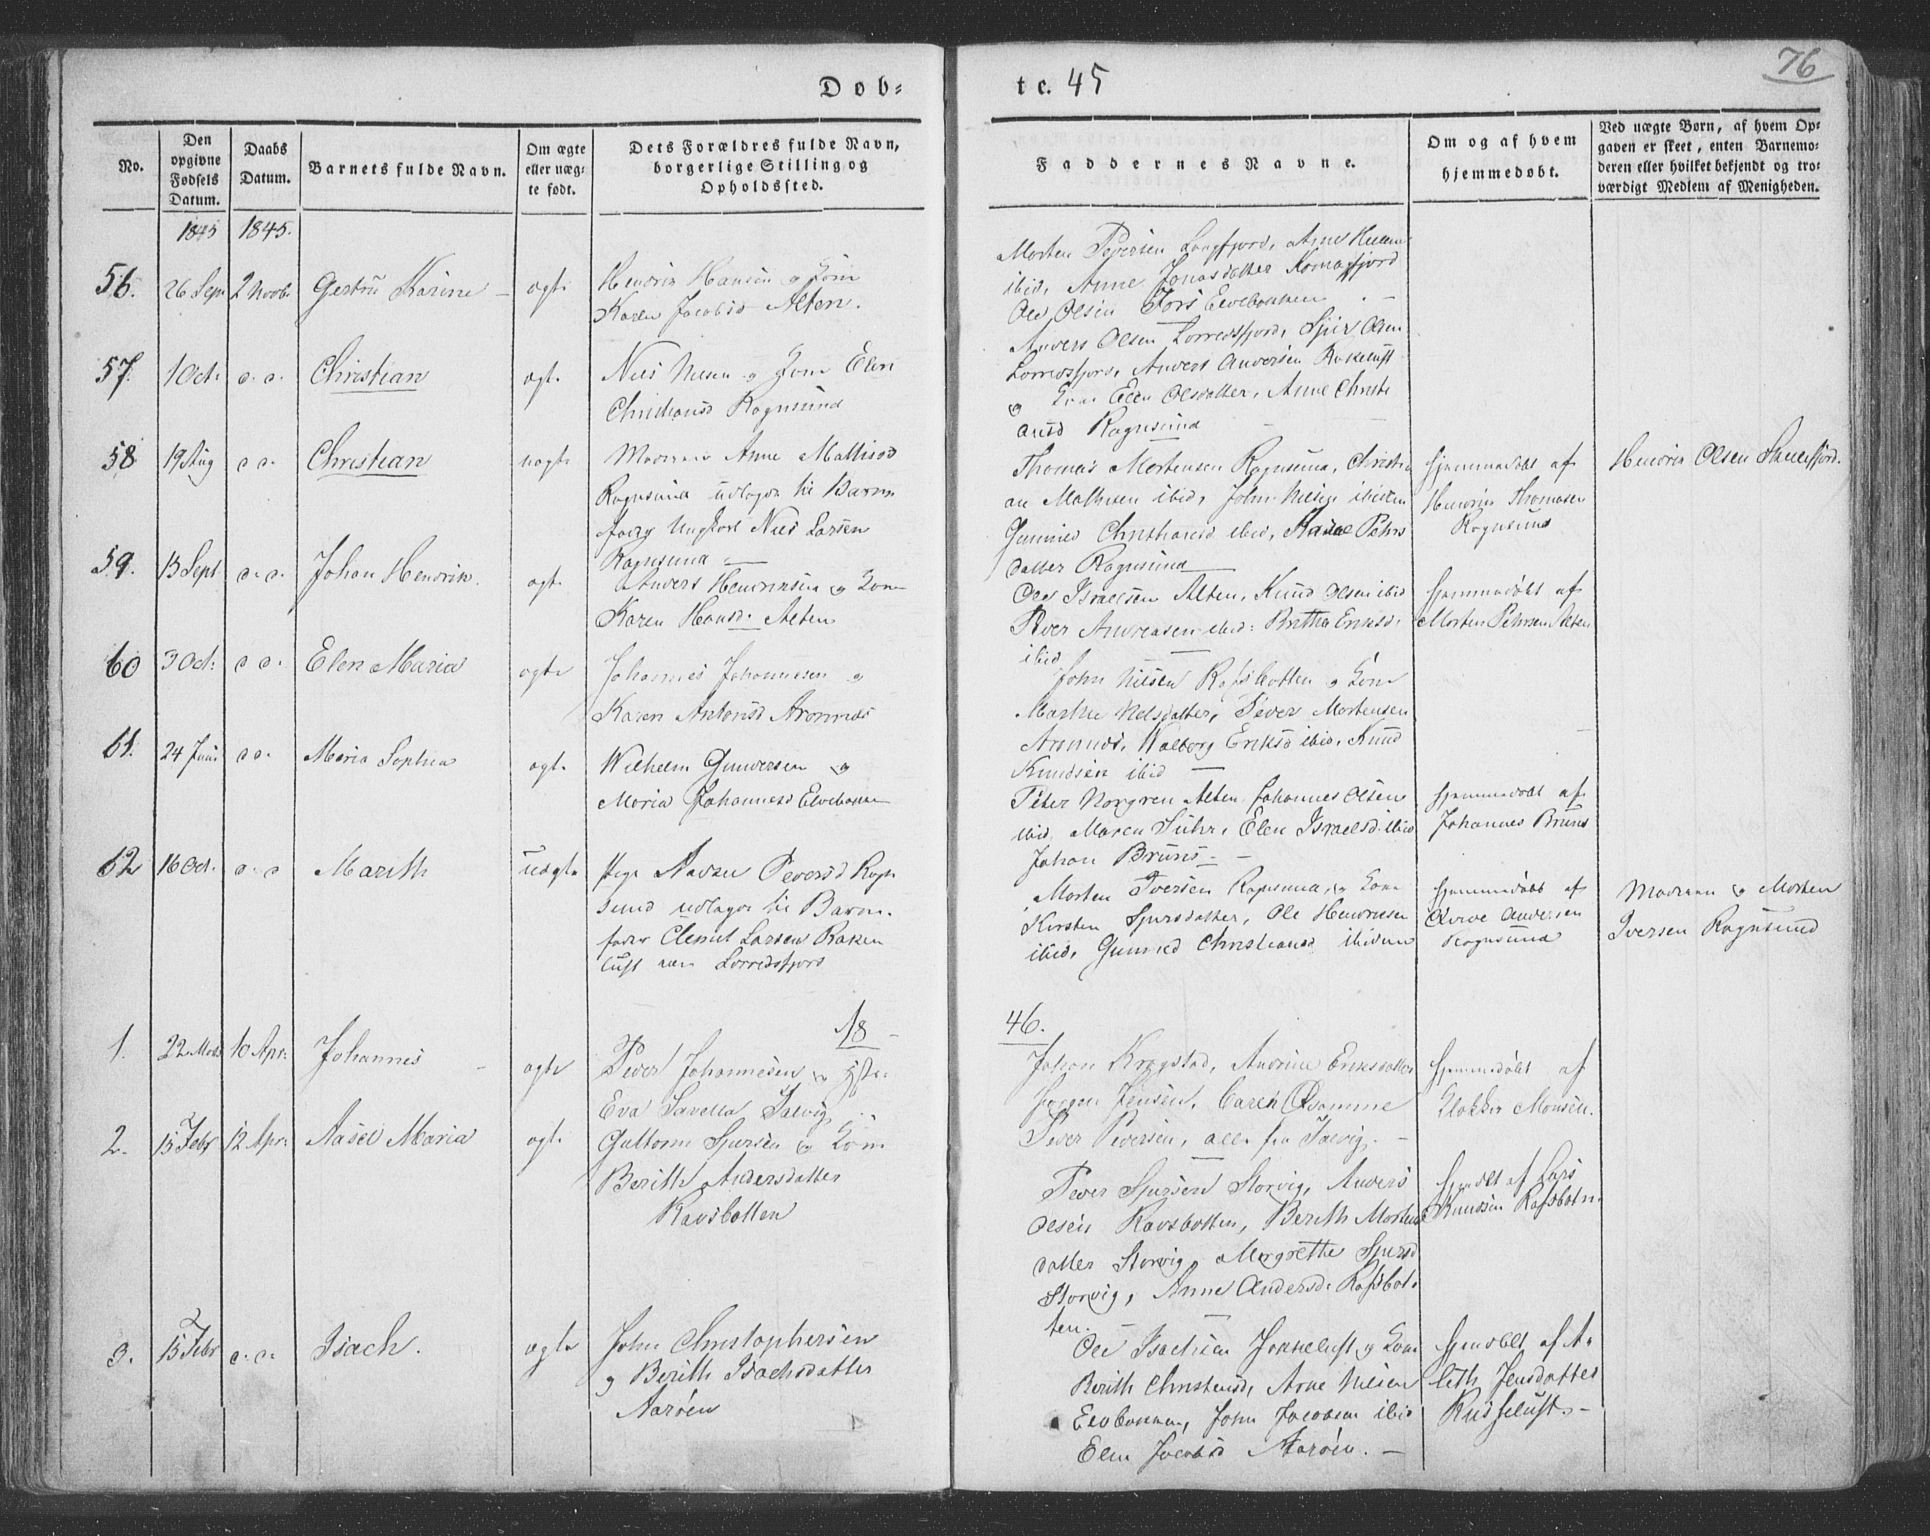 Dob=
te. 45
76
No.
Den opgivne Fødsels Datum.
Daabs Datum.
Barnets fulde Navn.
Om ægte eller uæg- te født.
Dets Forældres fulde Navn, borgerlige Stilling og Opholdssted.
Faddernes Navne.
Om og af hvem hjemmedøbt.
Ved uægte Børn, af hvem Op- gaven er skeet, enten Barnemo- deren eller hvilket bekjendt og tro- værdigt Medlem af Menigheden.
1845 1845.
56. 26 Sept 2 Novb. Karine ægte
Hendrik Hansen og Kone
Karen Jacobsd Alten.
Morten Pedersen Langfjord,
ibid, Anne Jonasdatter Komagfjord
Ole Olsen Fors Elvebakken
57. 1 Oct. d. d. Christian ægte
Niels Nilsen og Kone Elen
Christiansd Rognsund
Anders Olsen Lorredsfjord, Spir Olsen
Lorredsfjord, Anders Andersen Rakeluft
og Kone Elen Olsdatter, Anne Christi
ansd Rognsund
58 19 Aug d. d. Christian uægte
Moderen Anne Mathisd
Rognsund udlagde til Barne
fader Ungkarl Niels Larsen
Rognsund
Thomas Mortensen Rognsund, Christi
an Mathisen ibid, John Nilsen ibidem
Gunnild Christiansd ibid, Karen Pehrs
datter Rognsund
hjemmedøbt af
Hendrik Thomasen
Rognsund
Hendrik Olsen
59. 13 Sept d. d. Johan Hendrik. ægte
Anders Hendriksen og Kone
Karen Hansd. Alten
Ole Israelsen Alten, Knud Olsen ibid
Peder Andreasen ibid: Britha Eriksd.
ibid
hjemmedøbt af
Morten Pehrsen Alten
60 3 Oct: d. d. Elen Maria ægte
Johannes Johannesen og
Karen Antonsd Aronnæs
John Nilsen Rafsbotten og Kone
Marthe Nilsdatter, Peder Mortensen
Aronnæs, Walborg Eriksd ibid, Knud
Knudsen ibid
61. 24 Juni d. d. Maria Sophia ægte
Wilhelm Gundersen og
Maria Johannesd Elvebakken
Peter Norgren Alten Johannes Olsen
ibid, Maren Suhr, Elen Israelsd. ibid
Johan Bruns.
hjemmedøbt af
Johannes Bruns
62 16 Oct. d. d. Marith uægte
Pige Pedersd Rogn
sund udlagde til Barne
fader Clemet Larsen Raken
luft Lorredsfjord
Morten Iversen Rognsund, og Kone
Kirsten Spirsdatter, Ole Hendriksen
ibid, Gunnild Christiansd ibidem
hjemmedøbt af
Andersen
Rognsund
Moderen og Morten
Iversen Rognsund
18
46.
1. 22 Marts 10 Apr: Johannes ægte
Peder Johannesen og Hustru
Eva Talvig
Johan Krogstad, Andrine Eriksdatter
Jørgen Jensen, Caren
Peder Pedersen, alle fra Talvig.
hjemmedøbt af
Klokker Monsen.
2. 15 Febr 12 Apr: Aasel Maria ægte
Guttorm Spirsen og Kone
Berith Andersdatter
Ravsbotten
Peder Spirsen Storvig, Anders
Olsen Ravsbotten, Berith Mortens
datter Storvig, Margrethe Spirsd
Storvig, Anne Andersd. Rafsbot-
ten.
hjemdbt af Lars
Knudsen Rafsbotn
3. 15 Febr d. d. Isach. ægte
John Christophersen
og Berith Isachsdatter
Aarøen
Ole Isachsen og Kone
Berith Christensd, Arne Nilsen
Elvebakken, John Jacobsen ibid
Elen Jacobsd Aarøen.
hjemdbt af A-
leth Jensdatter
Russeluft.